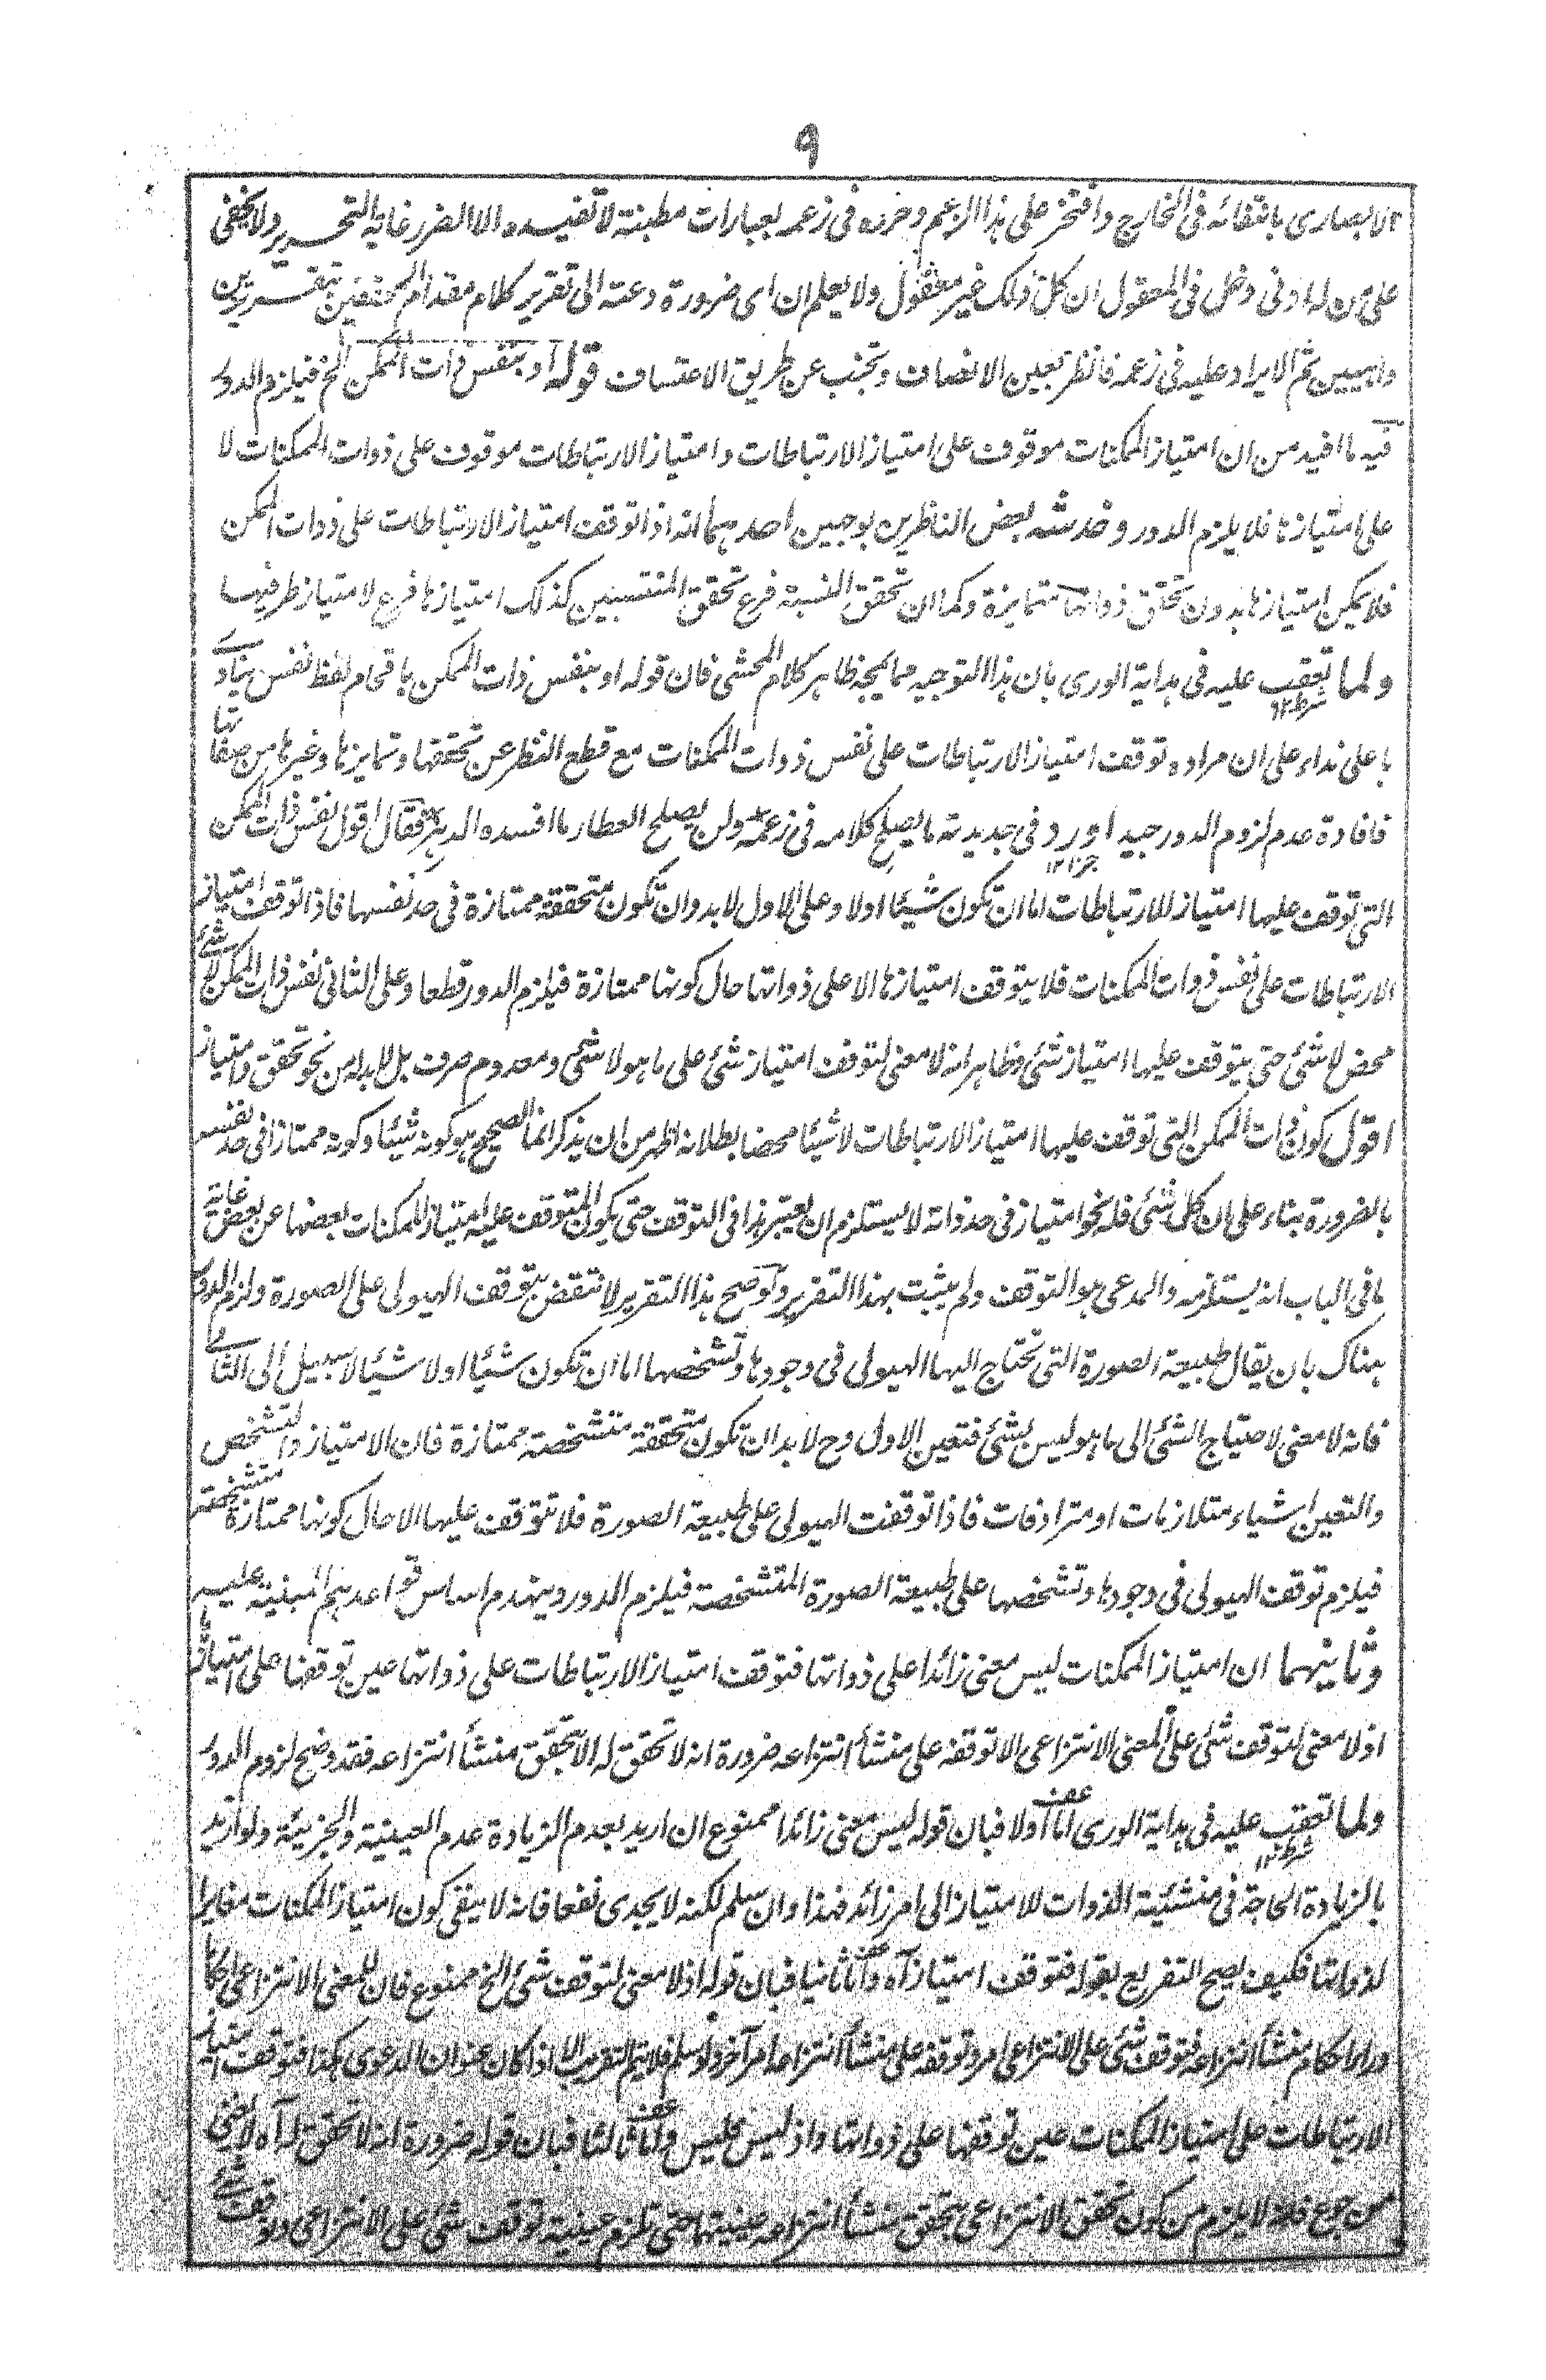 ٩
الابصارى بانتفائه فى الخارج وافتخر على هذا الزعم وحرره فى زعمه بعبارات مطنبة لا تفيده الا الضرر غاية التحرير ولا يخفى
على من له ادنى دخل فى المعقول ان كل ذلك غير معقول ولا يعلم ان اى ضرورة دعته الى تقرير كلام مقدام المحققين بتقريرين
واهيين ثم الايراد عليه فى زعمه فانظر بعين الانصاف وتجنب عن طريق الاعتساف قوله او بنفس ذات الممكن الخ فيلزم الدور
فيه ما افيد من ان امتياز الممكنات موقوف على امتياز الارتباطات وامتياز الارتباطات موقوف على ذوات الممكنات لا
على امتيازها فلا يلزم الدور وخدشه بعض الناظرين بوجهين احدهما انه اذا توقف امتياز الارتباطات على ذوات الممكن
فلا يمكن امتيازها بدون تحقق ذواتها متمايزة وكما ان تحقق النسبة فرع تحقق المنتسبين كذلك امتيازها فرع لامتياز طرفيها
ولما تعقب عليه فى هداية الورى بان هذا التوجيه مما يمجه ظاهر كلام المحشى فان قوله او بنفس ذات الممكن باقحام لفظ نفس ينادى
شرط ١٢
با على نداء على ان مراده توقف امتياز الارتباطات على نفس ذوات الممكنات مع قطع النظر عن تحققها وتمايزها وغيرها من صفاتها
فافادة عدم لزوم الدور جيد اورد فى جديدته ما يصلح كلامه فى زعمه ولن يصلح العطار ما افسده الدهر فقال اقول نفس ذات الممكن
جزا ١٢
التى توقف عليها امتياز للارتباطات اما ان تكون شيئا اولا وعلى الاول لابد وان تكون متحققة ممتازة فى حد نفسها فاذا توقف امتياز
الارتباطات على نفس ذوات الممكنات فلا يتوقف امتيازها الا على ذواتها حال كونها ممتازة فيلزم الدور قطعا وعلى الثانى نفس ذات الممكن لا شئ
محض لا شئ حتى يتوقف عليها امتياز شئ وظاهر انه لا معنى لتوقف امتياز شئ على ما هو لا شئ ومعدوم صرف بل لابد له من نحو تحقق وامتياز
اقول كون ذات الممكن التى توقف عليها امتياز الارتباطات لا شيئا محضا بطلانه اظهر من ان يذكر انما الصحيح هو كونه شيئا وكونه ممتازا فى حد نفسه
بالضرورة بناء على ان كل شئ فله نحو امتياز فى حد ذاته لا يستلزم ان يعتبر هذا فى التوقف حتى يكون المتوقف عليه امتياز الممكنات بعضها عن بعض غاية
ما فى الباب انه يستلزمه والمدعى هو التوقف ولم يثبت بهذا التقرير ولو صح هذا التقرير لانتقض بتوقف الهيولى على الصورة ولزم الدور
هناك بان يقال طبيعة الصورة التى تحتاج اليها الهيولى فى وجودها وتشخصها اما ان تكون شيئا اولا شيئا لا سبيل الى الثانى
فانه لا معنى لاحتياج الشئ الى ما هو ليس بشئ فتعين الاول وح لابد ان تكون متحققة متشخصة ممتازة فان الامتياز والتشخص
والتعين اشياء متلازمات او مترادفات فاذا توقفت الهيولى على طبيعة الصورة فلا تتوقف عليها الا حال كونها ممتازة متشخصة
فيلزم توقف الهيولى فى وجودها وتشخصها على طبيعة الصورة المتشخصة فيلزم الدور وينهدم اساس قواعدهم المبنية عليه
وثانيهما ان امتياز الممكنات ليس معنى زائدا على ذواتها فتوقف امتياز الارتباطات على ذواتها عين توقفها على امتيازها
اذ لا معنى لتوقف شئ على المعنى الانتزاعى الا توقفه على منشأ انتزاعه ضرورة انه لا تحقق له الا بتحقق منشأ انتزاعه فقد وضح لزوم الدور
ولما تعقب عليه فى هداية الورى اما اولا فبان قوله ليس معنى زائدا ممنوع ان اريد بعدم الزيادة عدم العينية والجزئية ولو اريد
شرط ١٢
بالزيادة الحاجة فى منشئية الذوات للامتياز الى امر زائد فهذا وان سلم لكنه لا يجدى نفعا فانه لا ينفى كون امتياز الممكنات مغايرا
لذواتها فكيف يصح التفريع بقوله فتوقف امتياز آه واما ثانيا فبان قوله اذ لا معنى لتوقف شئ الخ ممنوع فان للمعنى الانتزاعى احكاما
وراء احكام منشأ انتزاعه فتوقف شئ على الانتزاعى امر وتوقفه على منشأ انتزاعه امر آخر ولو سلم فلا يتم التقريب الا اذا كان عنوان الدعوى هكذا فتوقف امتياز
الارتباطات على امتياز الممكنات عين توقفها على ذواتها واذ ليس فليس واما ثالثا فبان قوله ضرورة انه لا تحقق له آه لا يغنى
من جوع فانه لا يلزم من كون تحقق الانتزاعى بتحقق منشأ انتزاعه عينيتها حتى تلزم عينية توقف شئ على الانتزاعى وتوقف شئ